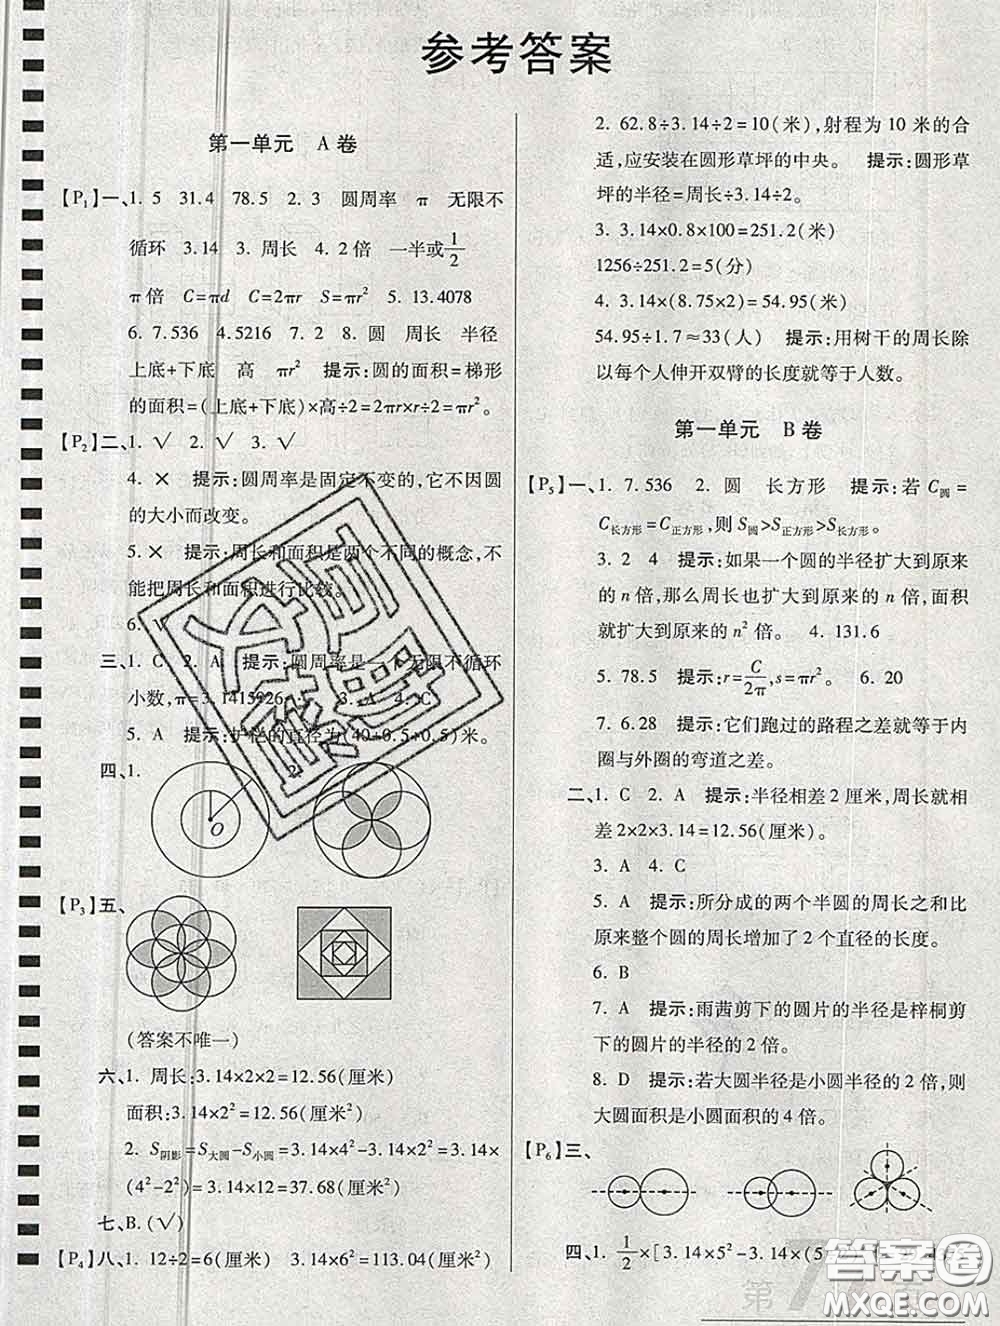 参考答案
第一单元 A卷
【P₁】一、1. 5 31.4 78.5 2. 3 圆周率 π 无限不
循环 3.14 3. 周长 4. 2倍 一半或1/2
π倍 C=πd C=2πr S=πr² 5. 13.4078
6. 7.536 4.5216 7. 2 8. 圆 周长 半径
上底+下底 高 πr² 提示:圆的面积=梯形
的面积=(上底+下底)×高÷2=2πr×r÷2=πr²。
【P₂】二、1. √ 2. √ 3. √
4. × 提示:圆周率是固定不变的,它不因圆
的大小而改变。
5. × 提示:周长和面积是两个不同的概念,不
能把周长和面积进行比较。
6. √
三、1. C 2. A 提示:圆周率是一个无限不循环
小数,π=3.1415926… 3. A 4. C
5. A 提示:护栏的直径为(40+0.5+0.5)米。
四、1. 2.
O
【P₃】五、
(答案不唯一)
六、1. 周长:3.14×2×2=12.56(厘米)
面积:3.14×2²=12.56(厘米²)
2. S阴影=S大圆-S小圆=3.14×4²-3.14×2²=3.14×
(4²-2²)=3.14×12=37.68(厘米²)
七、B.(√)
【P₄】八、1. 12÷2=6(厘米) 3.14×6²=113.04(厘米²)
2. 62.8÷3.14÷2=10(米),射程为10米的合
适,应安装在圆形草坪的中央。 提示:圆形草
坪的半径=周长÷3.14÷2。
3. 3.14×0.8×100=251.2(米)
1256÷251.2=5(分)
4. 3.14×(8.75×2)=54.95(米)
54.95÷1.7≈33(人) 提示:用树干的周长除
以每个人伸开双臂的长度就等于人数。
第一单元 B卷
【P₅】一、1. 7.536 2. 圆 长方形 提示:若C圆=
C长方形=C正方形,则S圆>S正方形>S长方形。
3. 2 4 提示:如果一个圆的半径扩大到原来
的n倍,那么周长也扩大到原来的n倍,面积
就扩大到原来的n²倍。 4. 131.6
5. 78.5 提示:r=C/2π,s=πr²。 6. 20
7. 6.28 提示:它们跑过的路程之差就等于内
圈与外圈的弯道之差。
二、1. C 2. A 提示:半径相差2厘米,周长就相
差2×2×3.14=12.56(厘米)。
3. A 4. C
5. A 提示:所分成的两个半圆的周长之和比
原来整个圆的周长增加了2个直径的长度。
6. B
7. A 提示:雨茜剪下的圆片的半径是梓桐剪
下的圆片的半径的2倍。
8. D 提示:若大圆半径是小圆半径的2倍,则
大圆面积是小圆面积的4倍。
【P₆】三、
四、1. 1/2×[3.14×5²-3.14×(5-2)
第7
答案圈
MXQE.COM